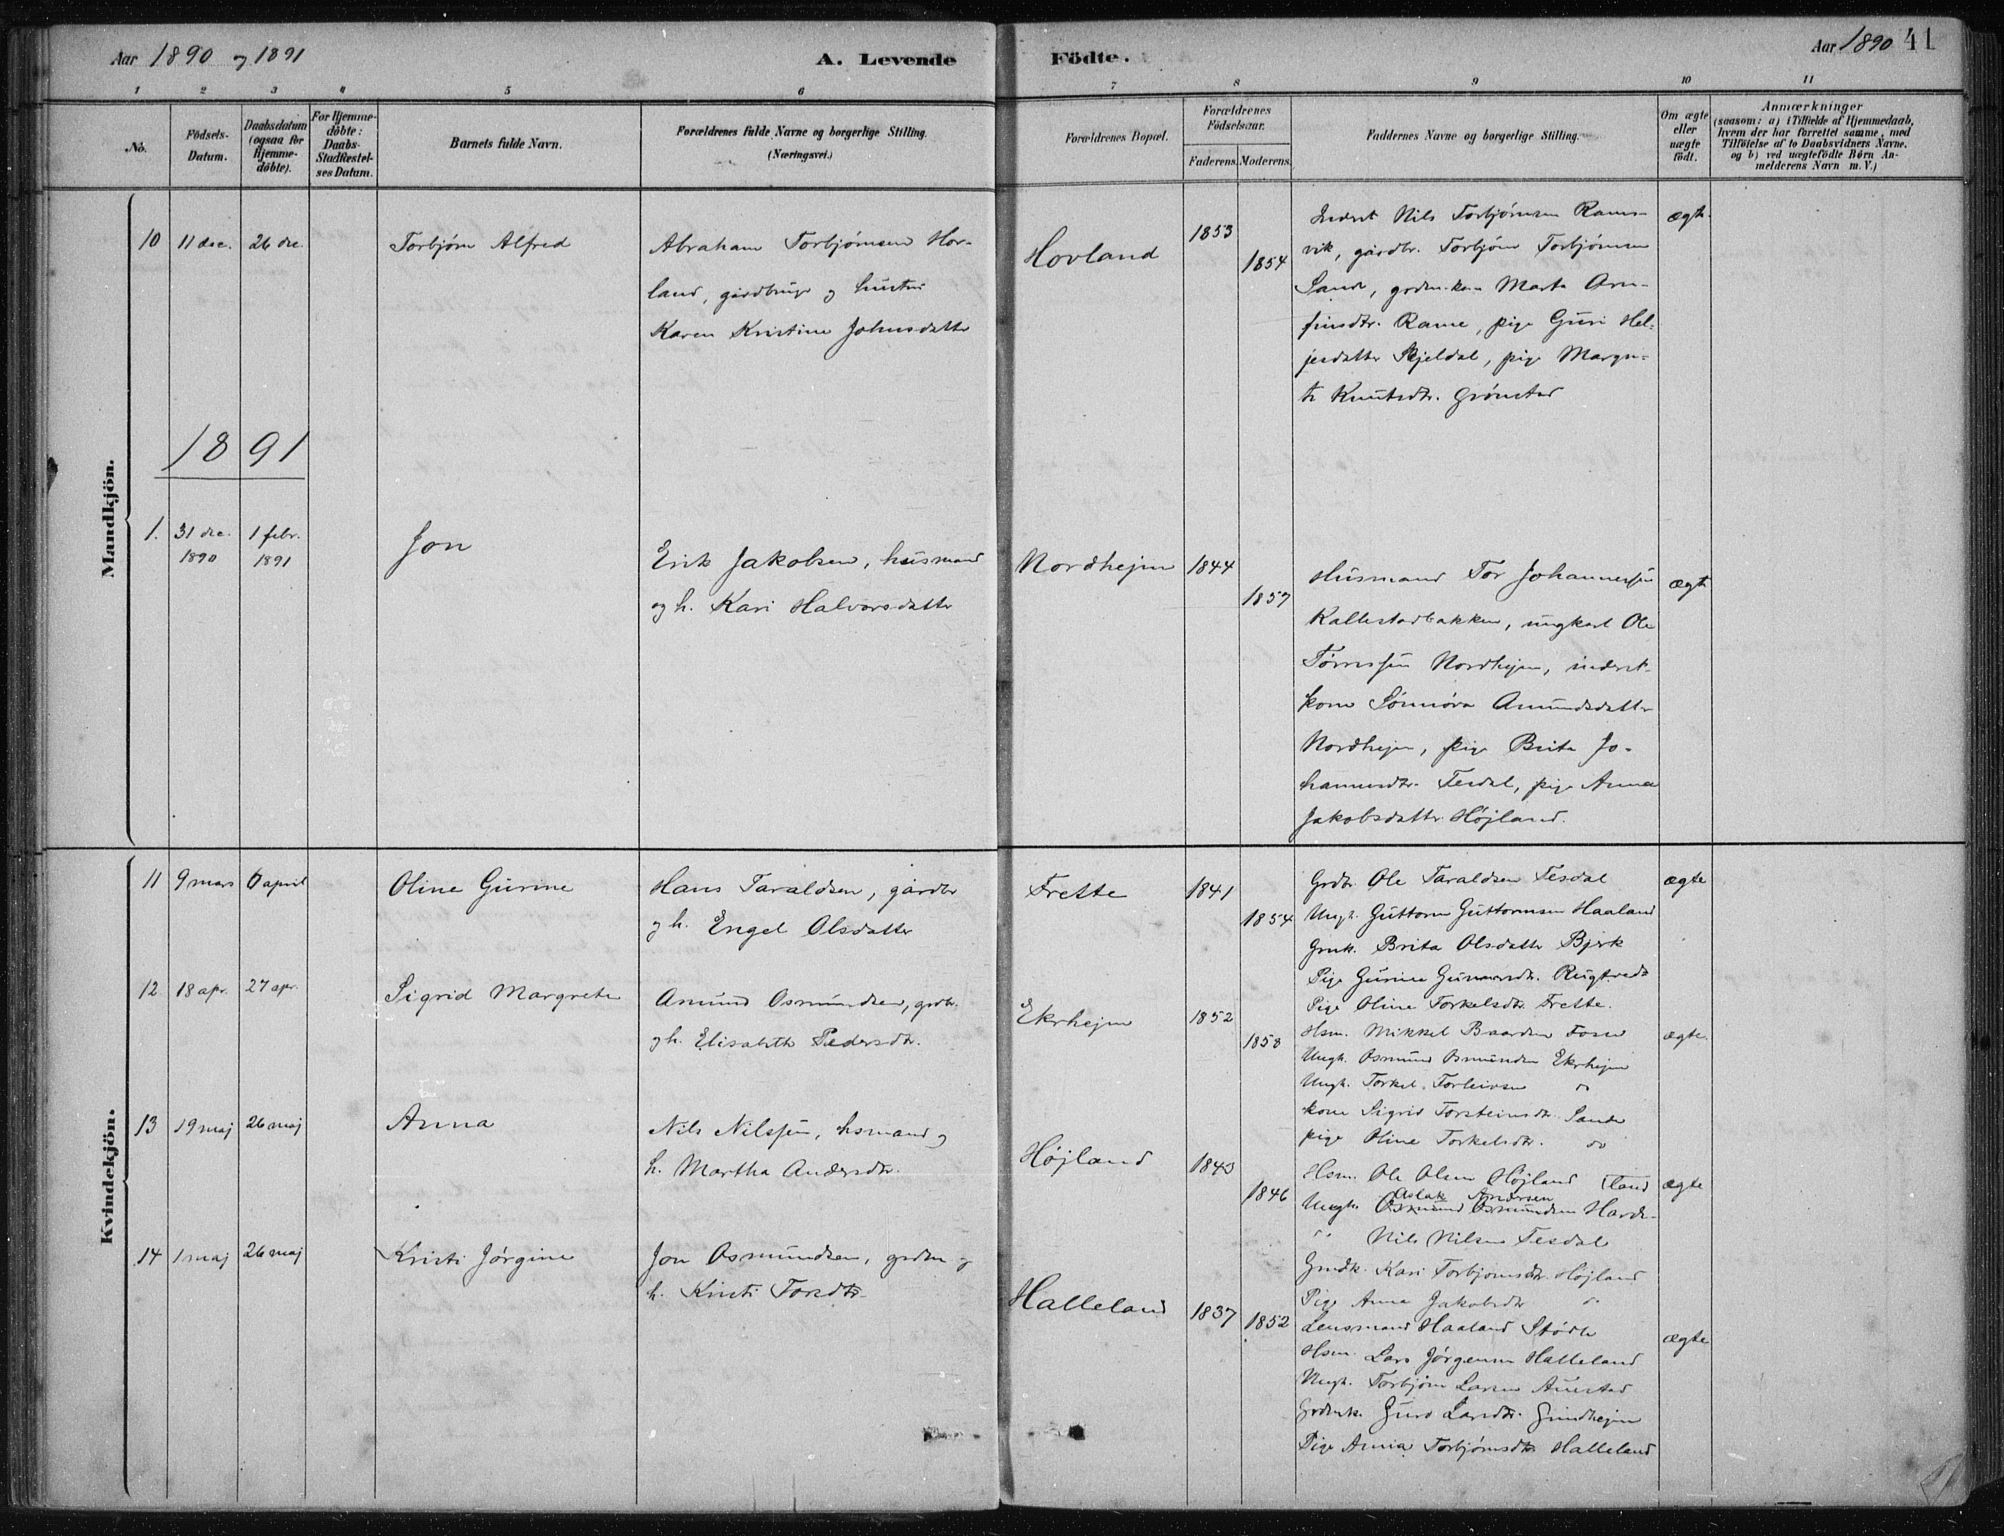 Aar 1890 og 1891
A. Levende
Födte.
Aar 1890 41
1 2 3 4 5 6 7 8 9 10 11
No.
Födsels-
Datum.
Daabsdatum
(ogsaa for
Hjemme-
döbte).
For Hjemme-
döbte:
Daabs-
Stadfæstel-
ses Datum.
Barnets fulde Navn.
Forældrenes fulde Navne og borgerlige Stilling.
(Næringsvei.)
Forældrenes Bopæl.
Forældrenes
Födselsaar.
Faderens. Moderens.
Faddernes Navne og borgerlige Stilling.
Om ægte
eller
uægte
födt.
Anmærkninger
(saasom: a) i Tilfælde af Hjemmedaab,
hvem der har forrettet samme, med
Tilföielse af to Daabsvidners Navne,
og b) ved uægtefödte Börn An-
melderens Navn m. V.)
Mandkjön.
10 11 dec. 26 dec
Torbjörn Alfred
Abraham Torbjørnsen Hov-
land, gårdbruger og hustru
Karen Kristine Johnsdatter
Hovland
1853
1854
Inderst Nils Torbjørnsen Rams-
vik, gårdbr. Torbjørn Torbjørnsen
Sande, grdm.kone Marta Arn-
finsdtr. Rame, pige Guri Hel-
jesdatter Skjeldal, pige Margre-
te Knutsdtr. Grønstad
ægte
1891
1. 31 dec. 1 febr.
1890 1891
Jon
Erik Jakobsen, husmand
og h. Kari Halvorsdatter
Nordhejm
1844
1857
Husmand Tor Johannessen
Kallestadbakken, ungkarl Ole
Tørressen Nordhejm, inderst-
kone Sønnøva Amundsdatter
Nordhejm, pige Brita Jo-
hannesdtr. Tesdal, pige Anna
Jakobsdatter Højland.
ægte
Kvindekjön.
11 9 mars 6 april
Oline Gurine
Hans Taraldsen, gårdbr
og h. Engel Olsdatter
Frette
1841
1854
Grdbr. Ole Taraldsen Tesdal
Ungk. Guttorm Guttormsen Haaland
Grmk. Brita Olsdatter Bjerk
Pige Gurine Gunnarsdtr. Rugtvedt
Pige Oline Torkelsdtr. Frette.
ægte
12 18 apr. 27 apr.
Sigrid Margrete
Amund Osmundsen, grdbr.
og h. Elisabeth Pedersdtr.
Ekrhejm
1852
1858
Hsm. Mikkel Baardsen Fosse
Ungk. Osmund Osmundsen Ekrhejm
Ungk. Torkel Torleivsen "
kone Sigrid Torsteinsdtr. Sande
pige Oline Torkelsdtr. do
ægte.
13 19 maj 26 maj
Anna
Nils Nilssen, hsmand og
h. Martha Andersdtr.
Højland
1843
1846
Hsm. Ole Olsen Højland [land
Aslak Andersen
Ungk. Osmund Osmundsen Harde-
" Nils Nilsen Tesdal
Grmdk. Kari Torbjørnsdtr. Højland
Pige Anna Jakobsdtr "
ægte
14 1 maj 26 maj
Kristi Jørgine
Jon Osmundsen, grdm og
h. Kristi Toresdtr.
Halleland
1837
1852
Lensmand Haaland Stødle
Hsm. Lars Jørgensen Halleland
Ungk. Torbjørn Larsen Austad
Grdmk. Guro Larsdtr. Grindhejm
Pige Anna Torbjørnsdtr Halleland
ægte